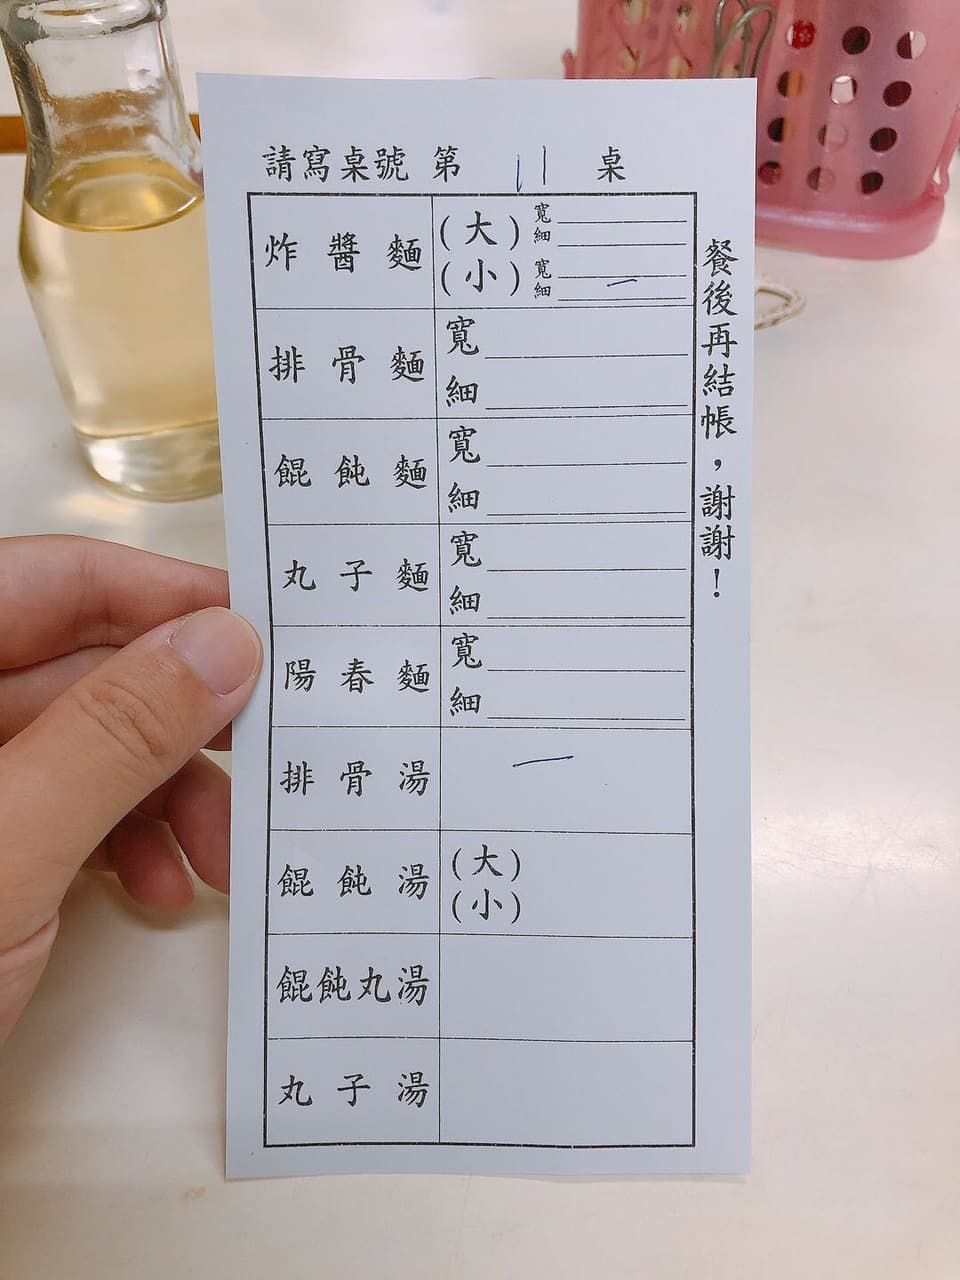 請寫桌號 第 11 桌
炸醬麵 (大) 寬
細
(小) 寬
細 一
排骨麵 寬
細
餛飩麵 寬
細
丸子麵 寬
細
陽春麵 寬
細
排骨湯 一
餛飩湯 (大)
(小)
餛飩丸湯
丸子湯
餐後再結帳，謝謝！